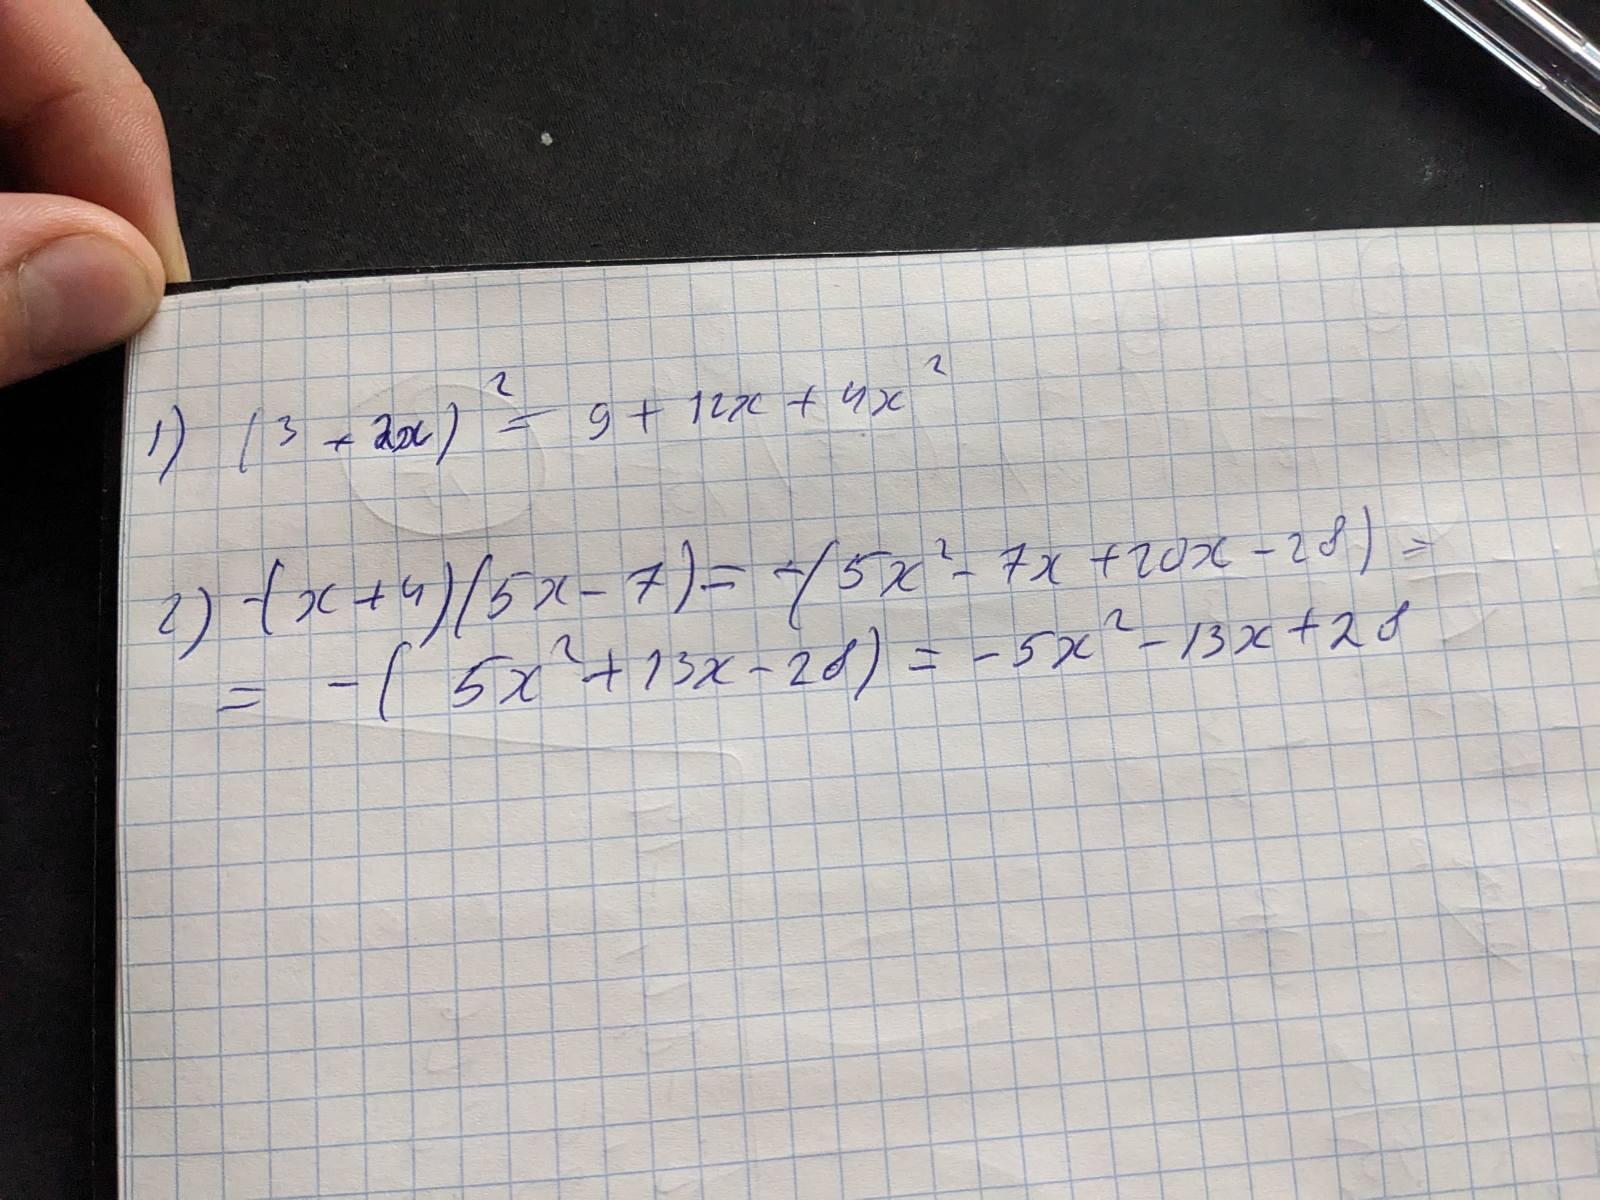 1) (3 + 2x)² = 9 + 12x + 4x²
2) -(x+4)(5x-7) = -(5x² - 7x + 20x - 28) =
= -( 5x² + 13x - 28) = -5x² - 13x + 28